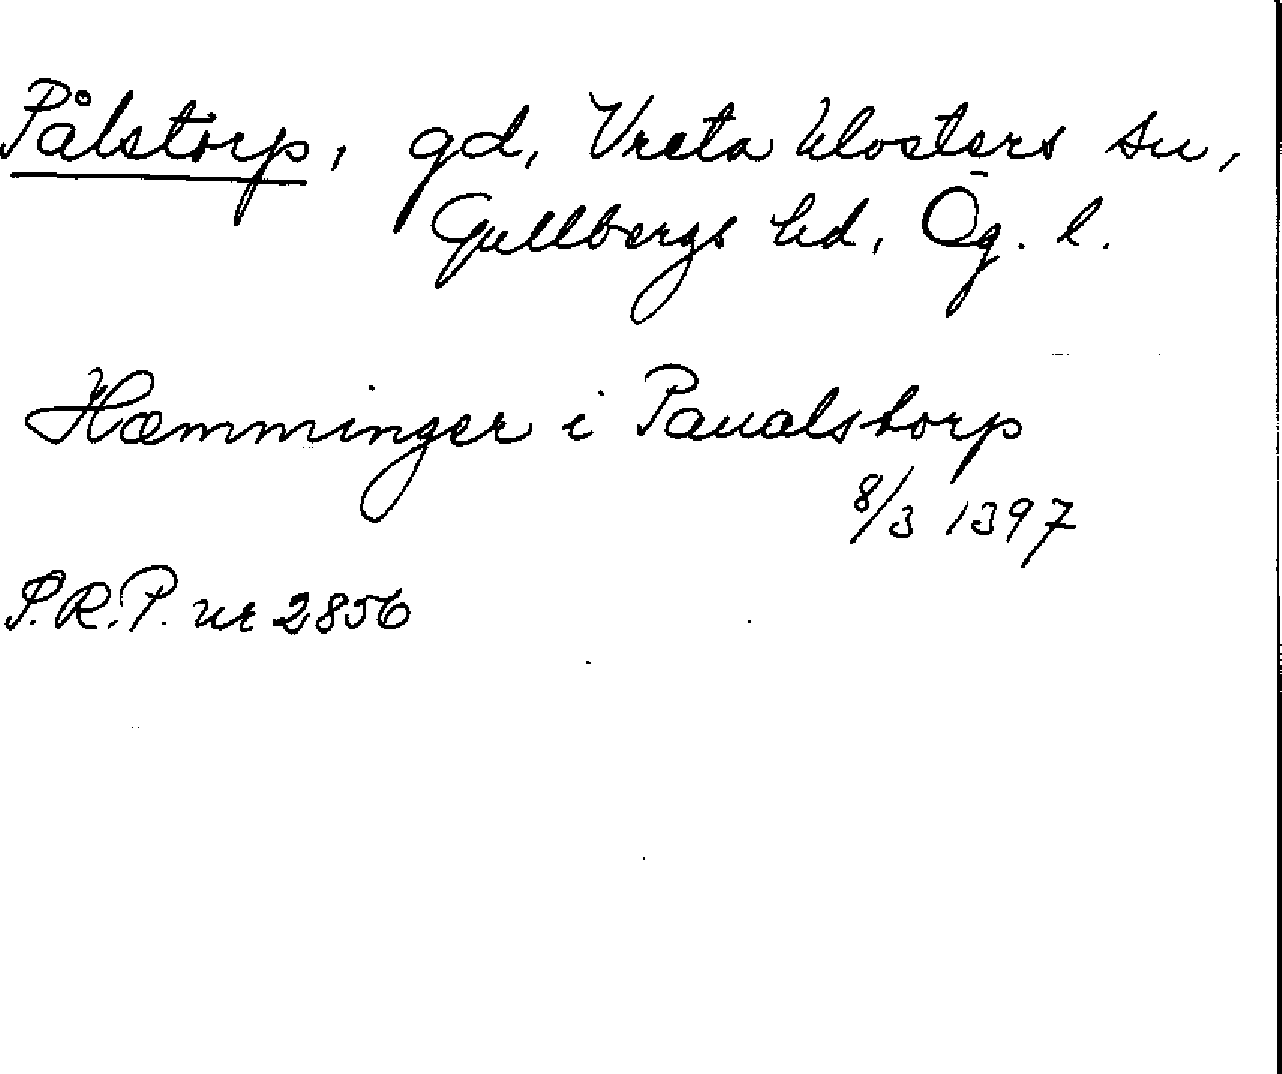 Pålstorp, gd, Vreta klosters sn,
Gullbergs hd, Ög. l.
Hæmminger i Paualstorp
8/3 1397
S.R.P. nr 2856